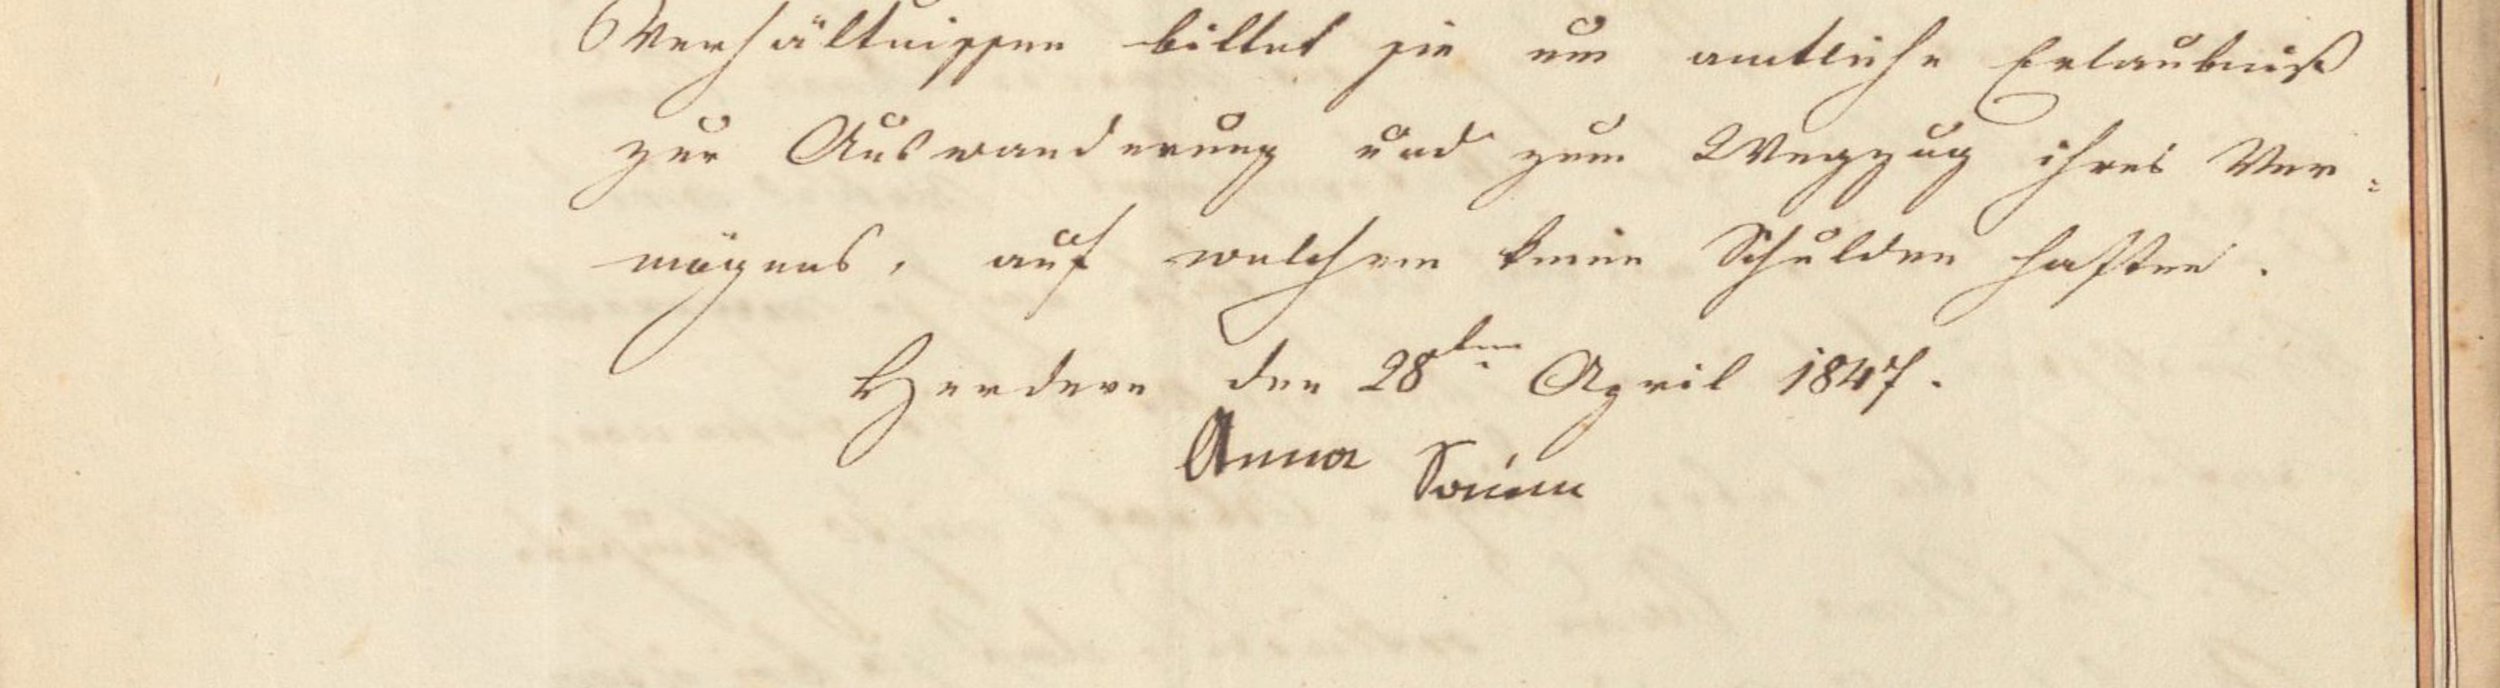 Verhältnissen bittet sie um amtliche Erlaubniß
zur Auswanderung und zum Wegzug ihres Ver-
mögens, auf welchem keine Schulden haften.
Herdern den 28ten April 1847.
Anna